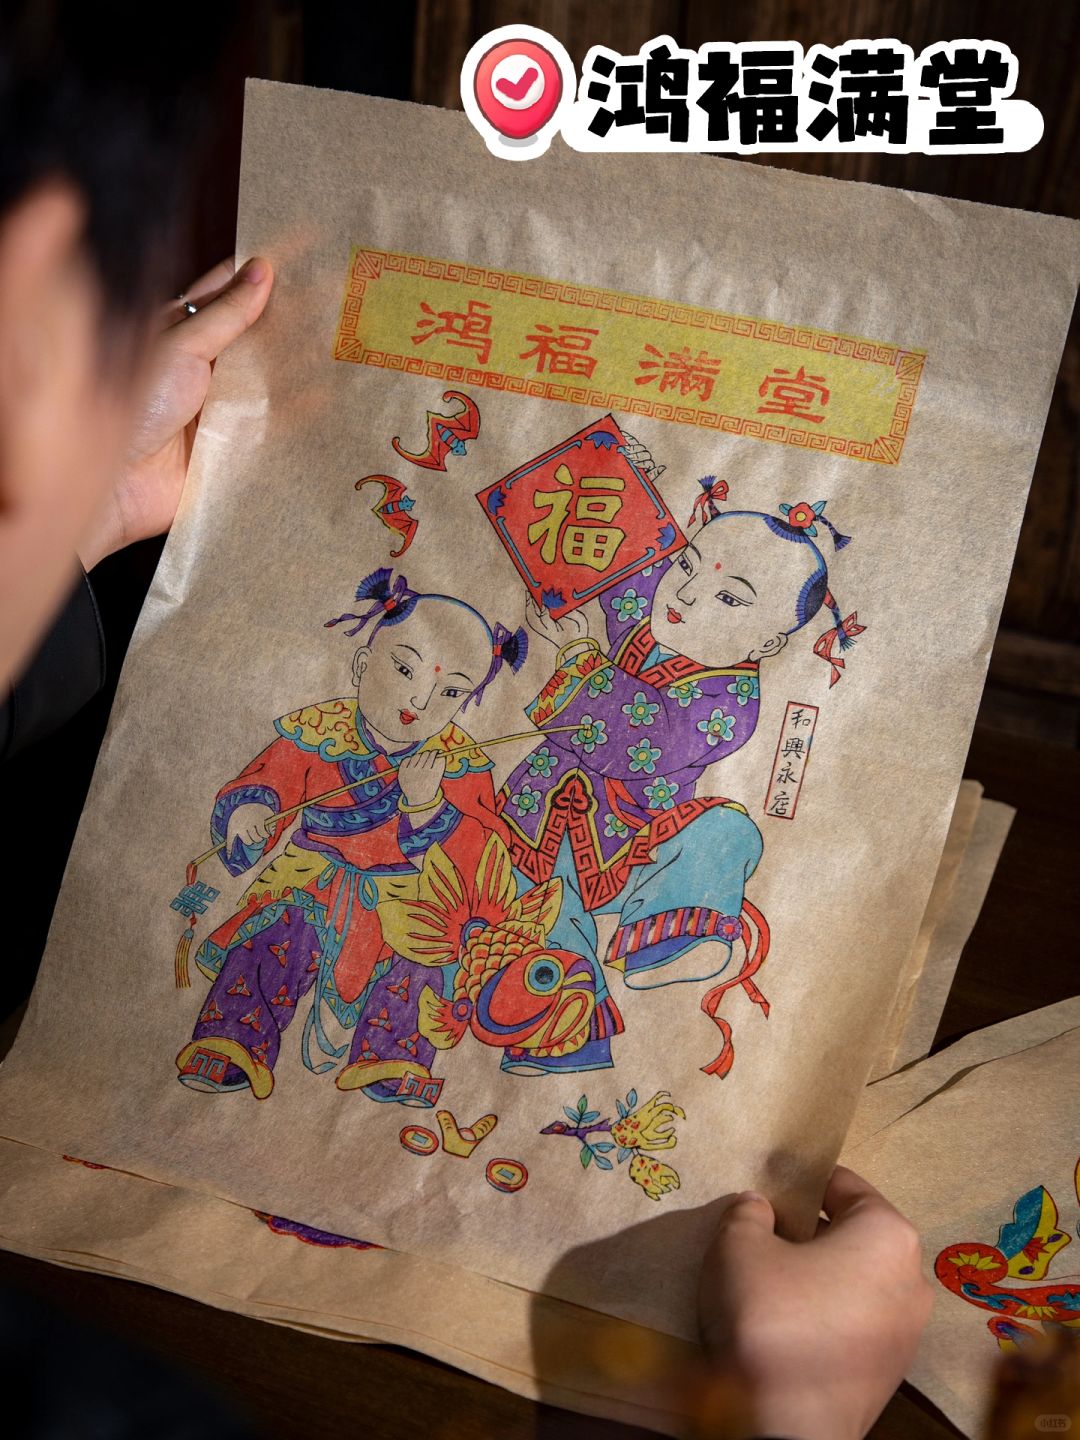 鸿福满堂
鸿福满堂
福
和興永店
小红书